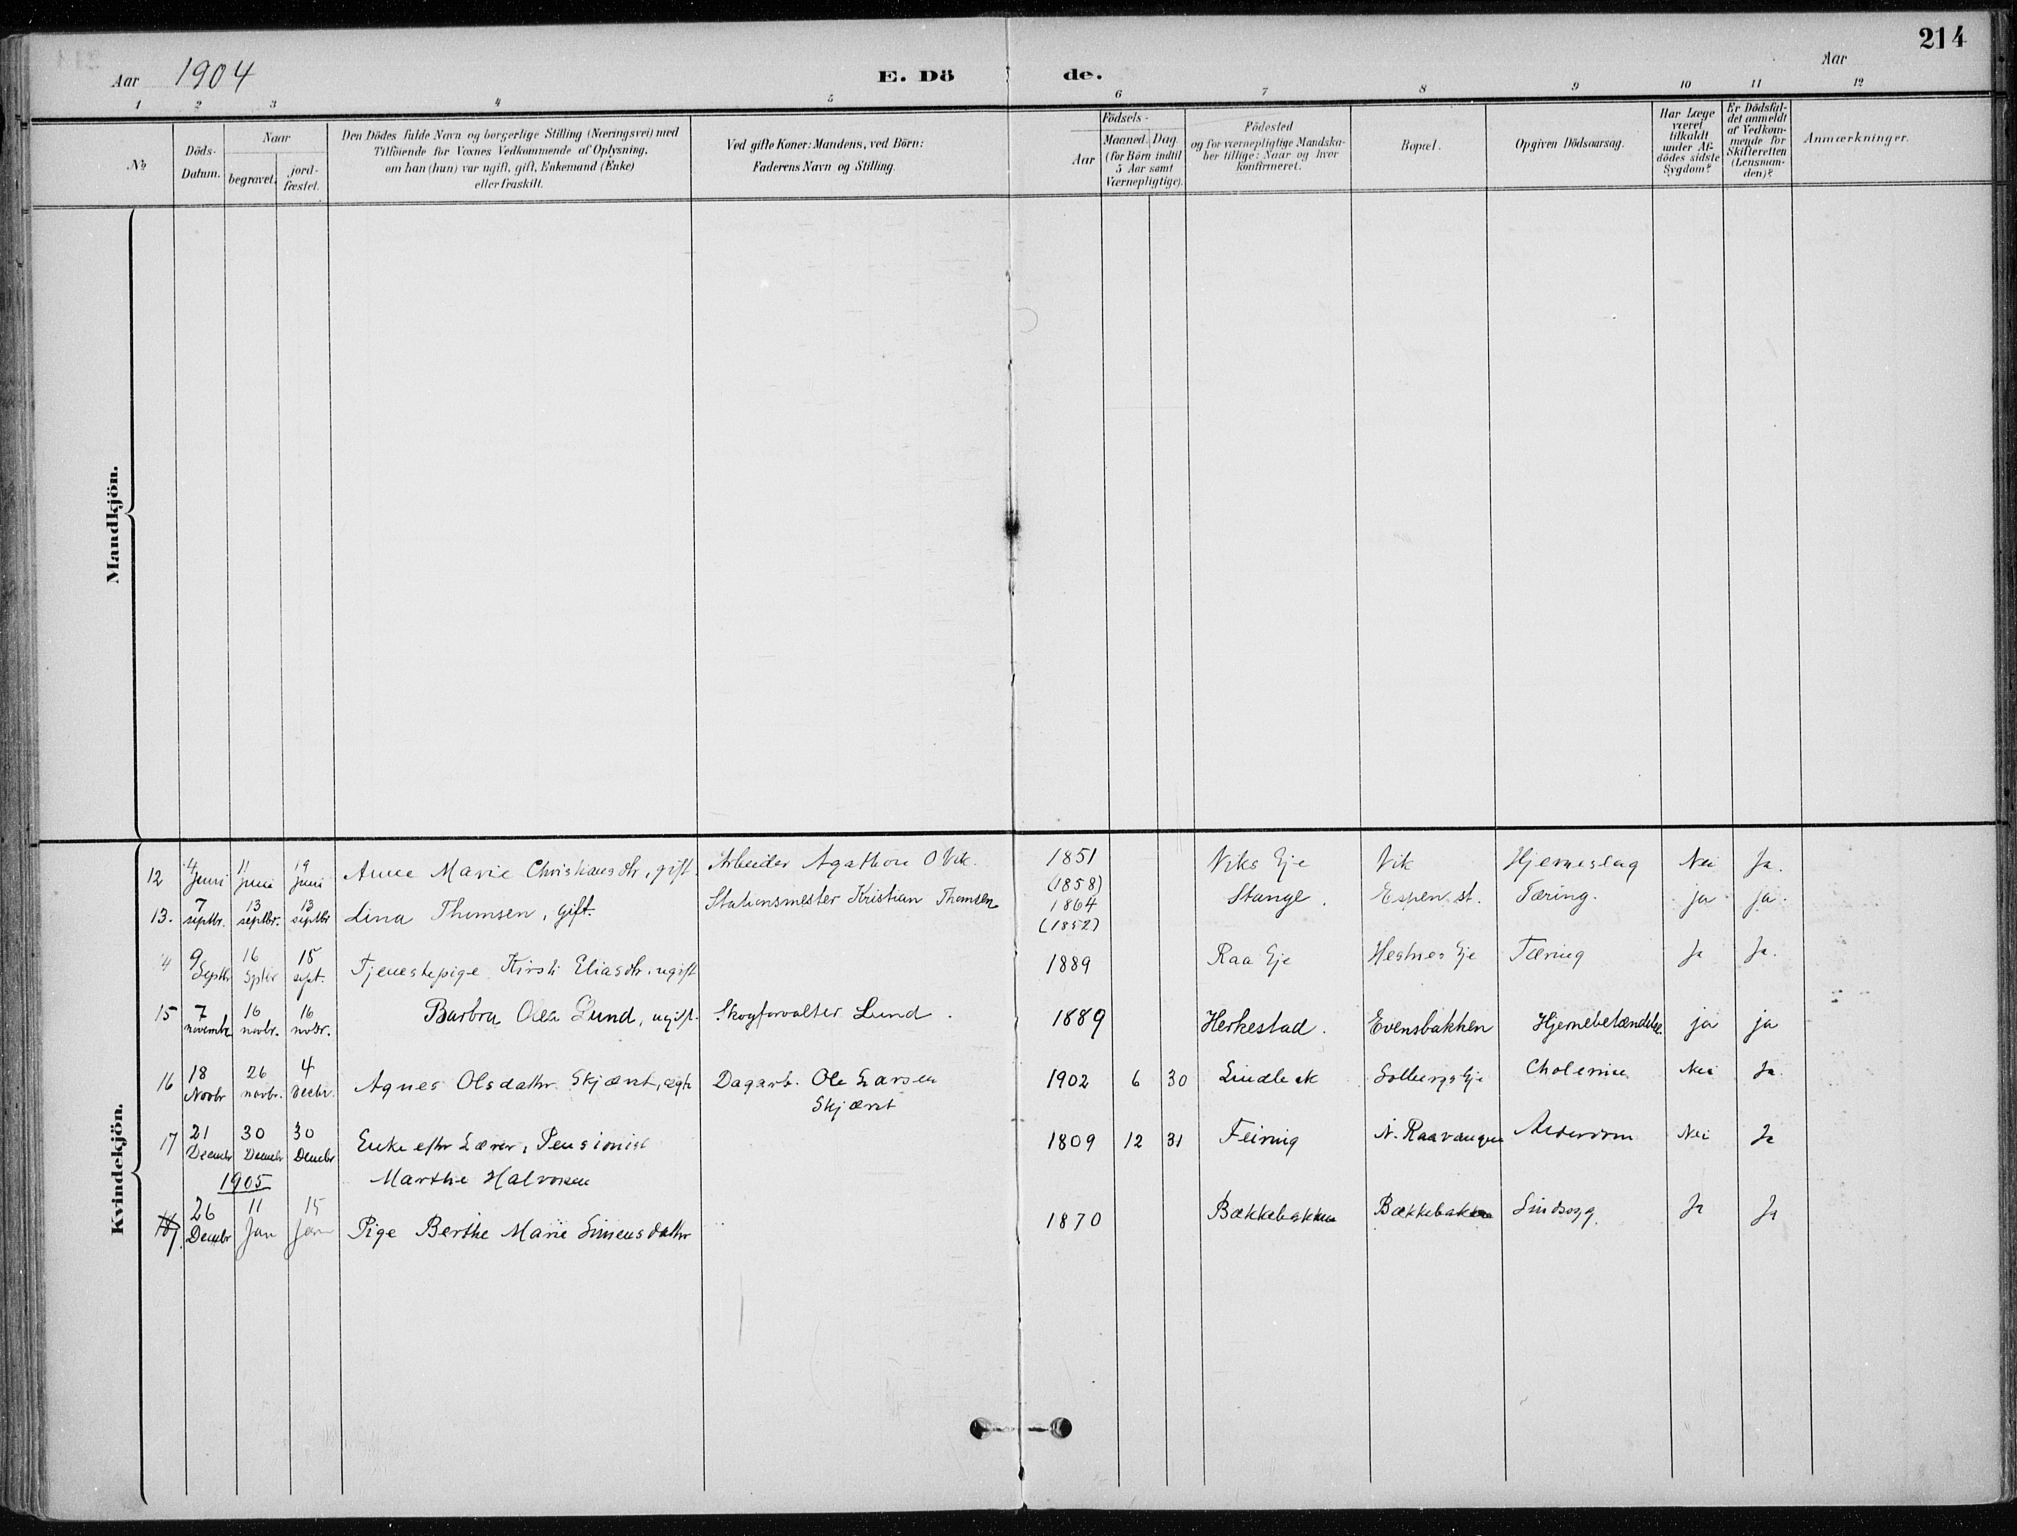 214
Aar 1904 E. Dö de. Aar
1 2 3 4 5 6 7 8 9 10 11 12
№
Döds-Datum.
Naar
begravet.
jord-fæstet.
Den Dödes fulde Navn og borgerlige Stilling (Næringsvei) med
Tilföiende for Voxnes Vedkommende af Oplysning,
om han (hun) var ugift, gift, Enkemand (Enke)
eller fraskilt.
Ved gifte Koner: Mandens, ved Börn:
Faderens Navn og Stilling.
Födsels-
Aar
Maaned. Dag.
(for Börn indtil
5 Aar samt
Værnepligtige).
Födested
og for værnepligtige Mandska-
ber tillige: Naar og hvor
konfirmeret.
Bopæl.
Opgiven Dödsaarsag.
Har Læge
været
tilkaldt
under Af-
dödes sidste
Sygdom?
Er Dödsfal-
det anmeldt
af Vedkom-
mende for
Skifteretten
(Lensman-
den)?
Anmærkninger.
Mandkjön.
Kvindekjön.
12 4 Juni 11 Juni 19 Juni Anne Marie Christiansdtr, gift. Arbeider Agathon O Vik. 1851 Viks Eje Vik Hjerneslag Nei Ja.
(1858)
13. 7 septbr. 13 septbr. 18 septbr Lina Thomsen, gift. Stationsmester Kristian Thomsen 1864 Stange. Espen st. Tæring. ja ja.
(1852)
9 Septbr 16 18 sept. Tjenestepige Kirsti Eliasdtr. ugift 1889 Raa Eje Hestnes Eje Tæring Ja Ja.
15 7 novembr 16 novbr. 16 novbr. Barbra Olea Lund, ugift. Skogforvalter Lund. 1889 Herkestad. Evensbakken Hjernebetændelse. ja ja
16 18 Novbr 26 novbr. 4 Decbr. Agnes Olsdathr. Skjæret, ægte Dagarb. Ole Larsen 1902 6 30 Lindbæk Solbergs Eje Cholerine Nei Ja.
Skjæret
17 21 Decembr 30 Decembr 30 Decembr Enke efter Lærer, Pensionist 1809 12 31 Feiring N. Raavangen Alderdom Nei Ja
1905 Marthe Halvorsen
26 Decembr 11 Jan 15 Jan Pige Berthe Marie Simensdathr 1870 Bækkebakken Bækkebakken Sindssyg. Ja Ja